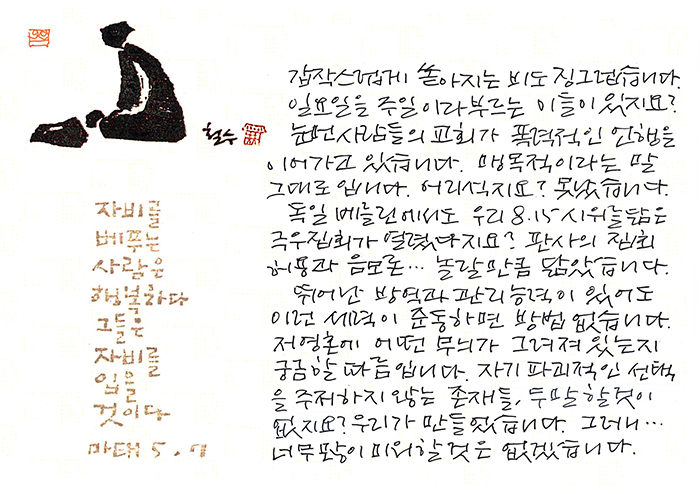 철수
자비를
베푸는
사람은
행복하다
그들은
자비를
입을
것이다
마태 5.7
갑작스럽게 쏟아지는 비도 징그럽습니다.
일요일을 주일이라 부르는 이들이 있지요?
눈먼 사람들의 교회가 폭력적인 언행을
이어가고 있습니다. 맹목적이라는 말
그대로입니다. 어리석지요? 못났습니다.
독일 베를린에서도 우리 8.15 시위를 닮은
극우집회가 열렸다지요? 판사의 집회
허용과 음모론… 놀랄만큼 닮았습니다.
뛰어난 방역과 관리능력이 있어도
이런 세력이 준동하면 방법 없습니다.
저 영혼에 어떤 무늬가 그려져 있는지
궁금할 따름입니다. 자기 파괴적인 선택
을 주저하지 않는 존재들, 두말할 것이
없지요? 우리가 만들었습니다. 그러니…
너무 많이 미워할 것은 없겠습니다.